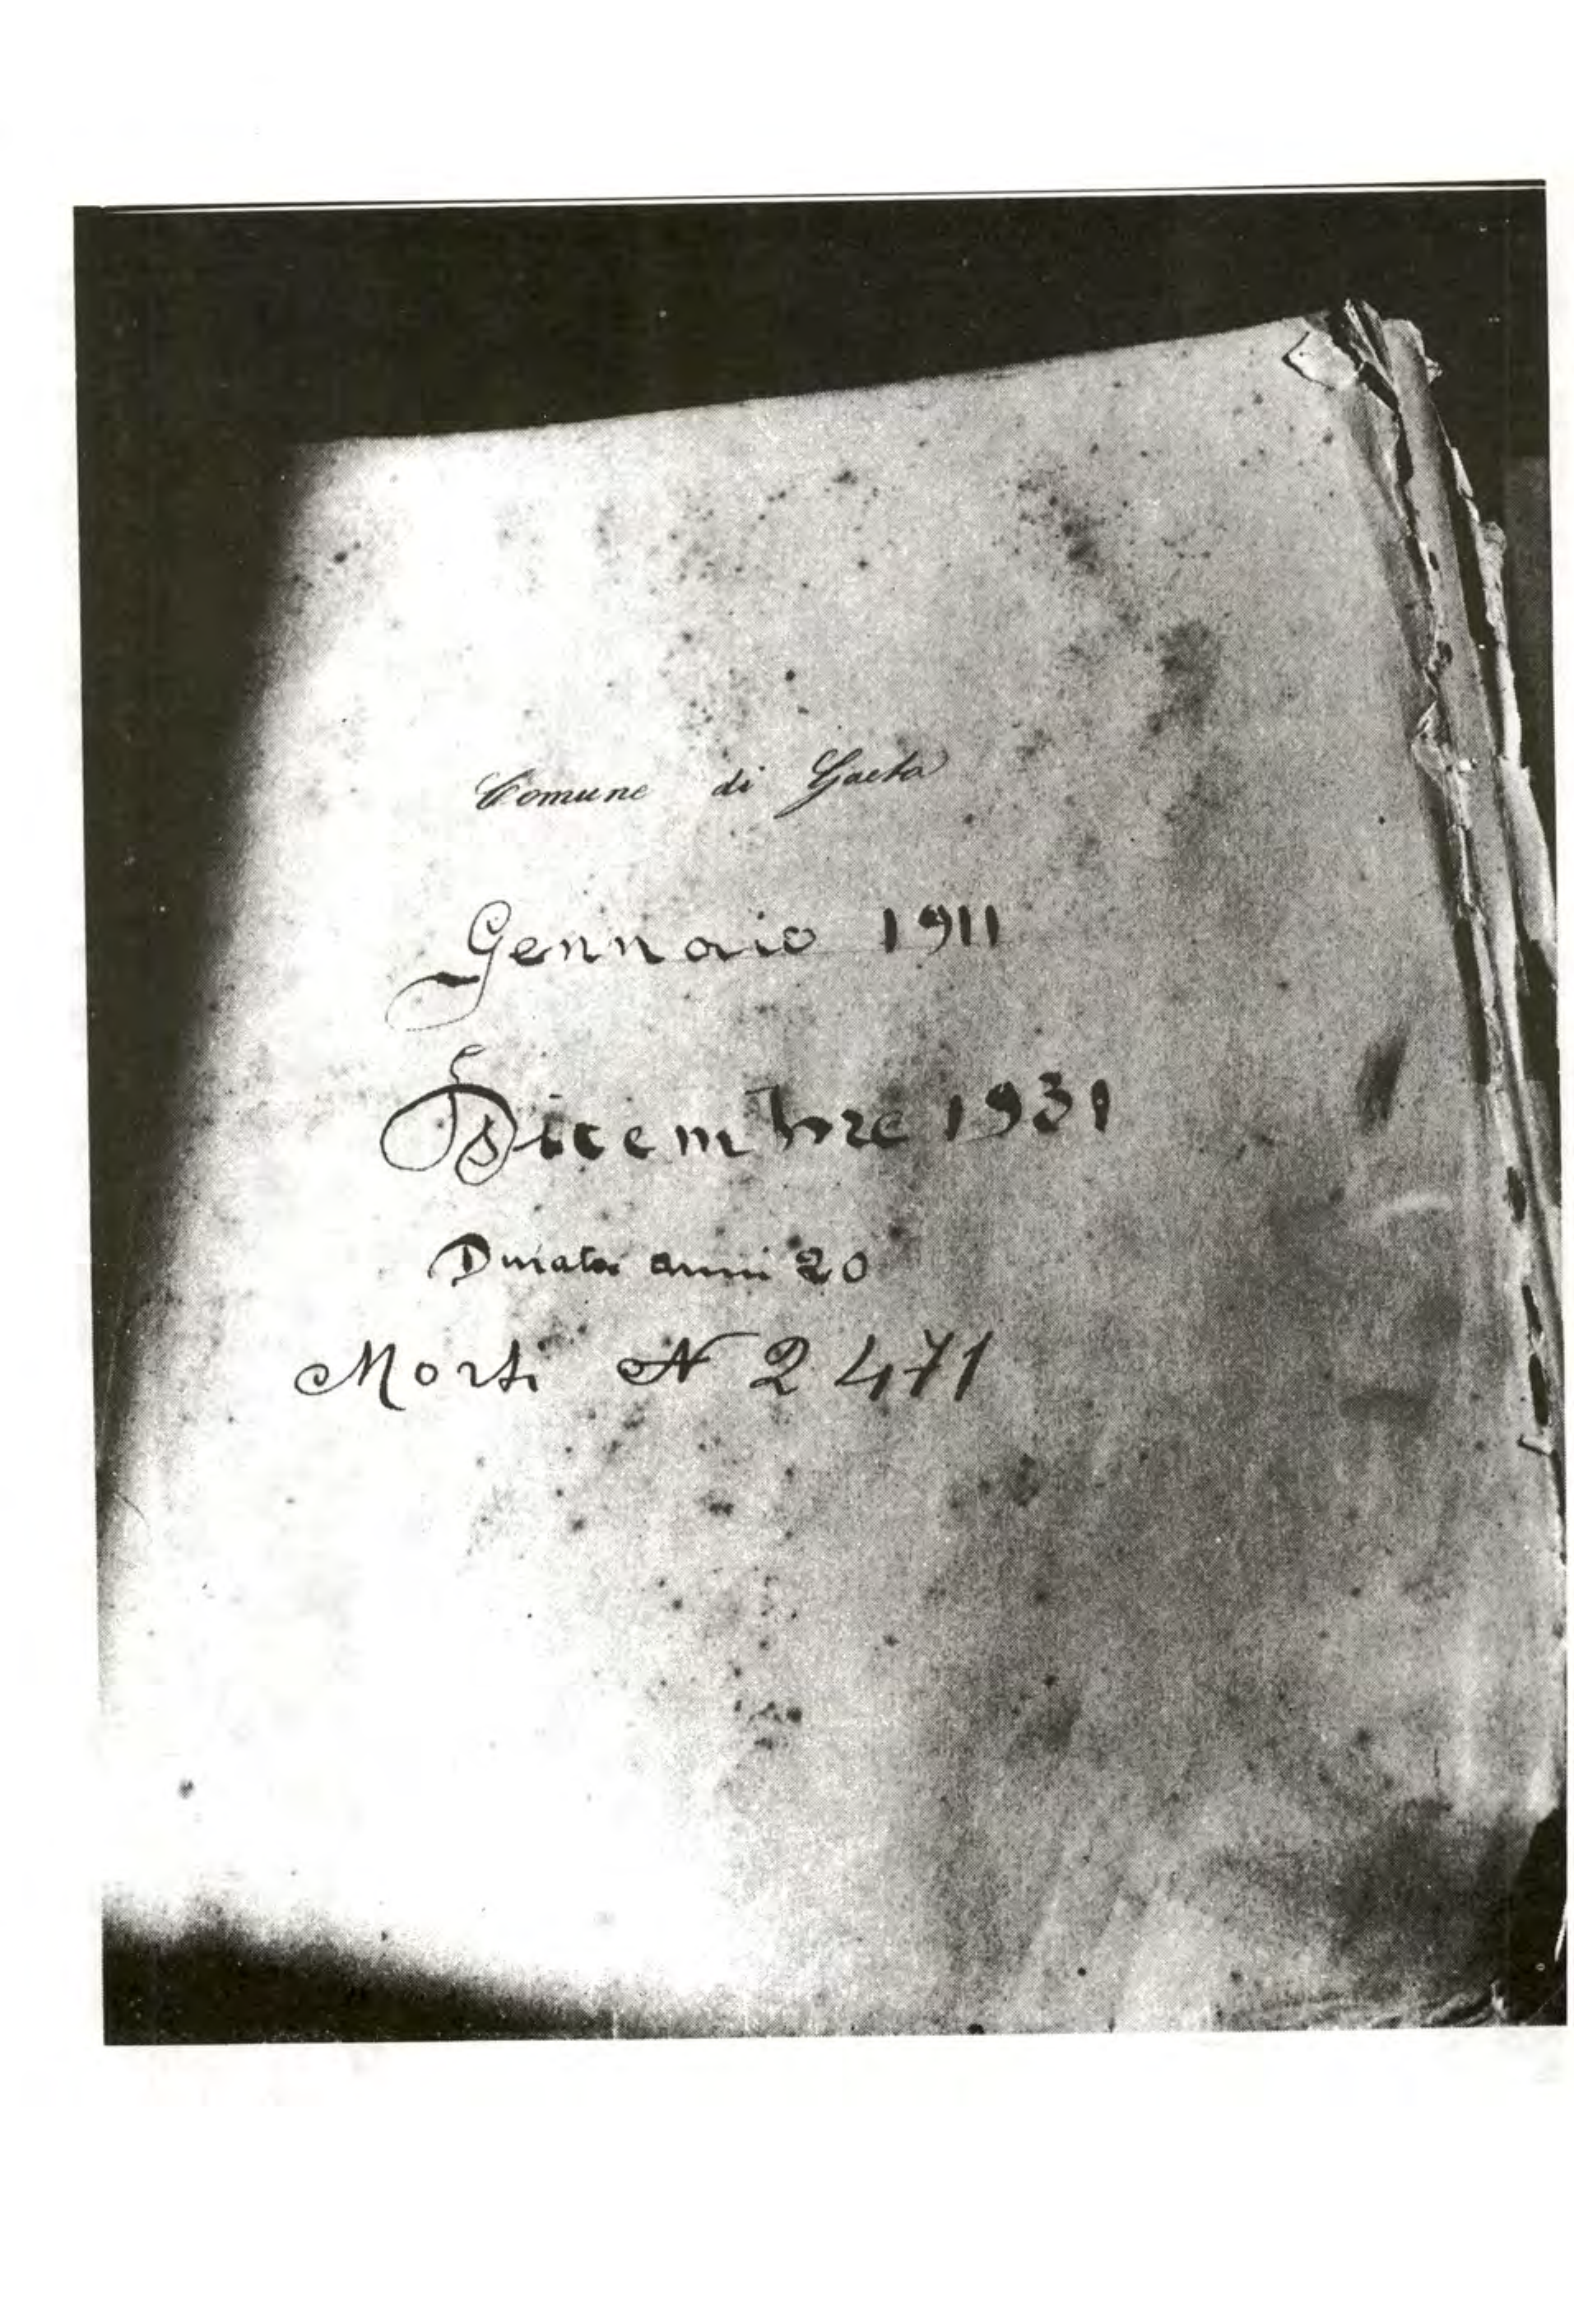 Comune di Gaeta
Gennaio 1911
Dicembre 1931
Durata anni 20
Morti N 2471